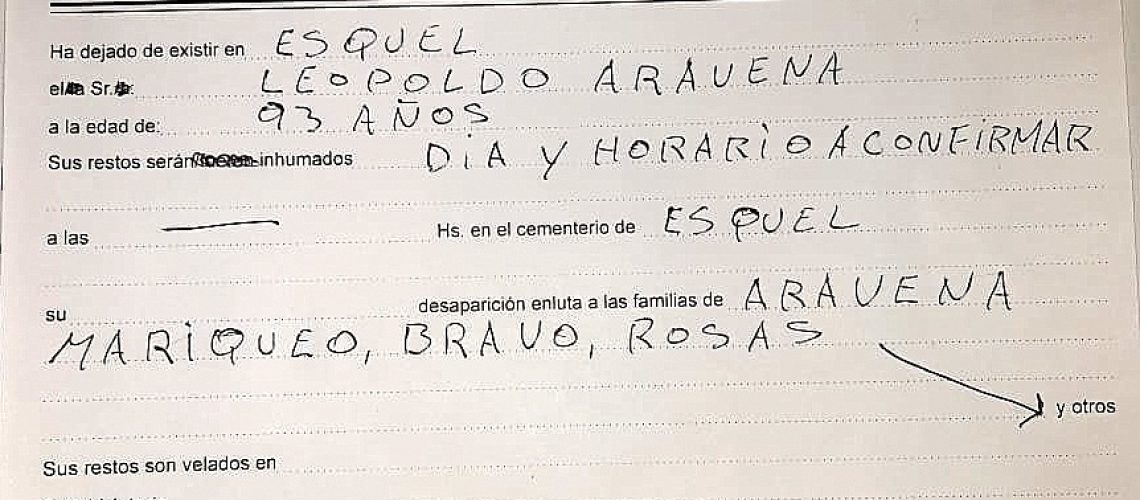 Ha dejado de existir en ESQUEL
el Sr. LEOPOLDO ARAVENA
a la edad de: 93 AÑOS
Sus restos serán inhumados DIA Y HORARIO A CONFIRMAR
a las — Hs. en el cementerio de ESQUEL
su desaparición enluta a las familias de ARAVENA
MARIQUEO, BRAVO, ROSAS
y otros
Sus restos son velados en